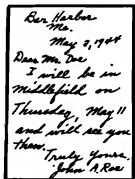 Bar Harbor
Me.
May 3, 1944
Dear Mr. Doe
I will be in
Middlefield on
Thursday, May 11
and will see you
then.
Truly Yours,
John A. Roe